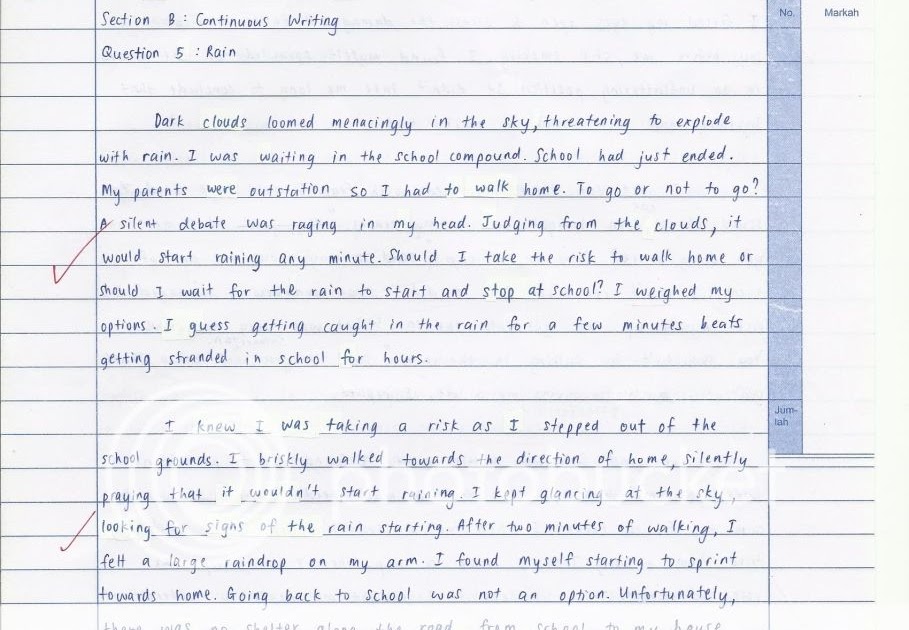 No.
Markah
Section B : Continuous Writing
Question 5 : Rain
Dark clouds loomed menacingly in the sky, threatening to explode
with rain. I was waiting in the school compound. School had just ended.
My parents were outstation so I had to walk home. To go or not to go?
A silent debate was raging in my head. Judging from the clouds, it
would start raining any minute. Should I take the risk to walk home or
should I wait for the rain to start and stop at school? I weighed my
options. I guess getting caught in the rain for a few minutes beats
getting stranded in school for hours.
Jum-
lah
I knew I was taking a risk as I stepped out of the
school grounds. I briskly walked towards the direction of home, silently
praying that it wouldn't start raining. I kept glancing at the sky,
looking for signs of the rain starting. After two minutes of walking, I
felt a large raindrop on my arm. I found myself starting to sprint
towards home. Going back to school was not an option. Unfortunately,
there was no shelter along the road from school to my house